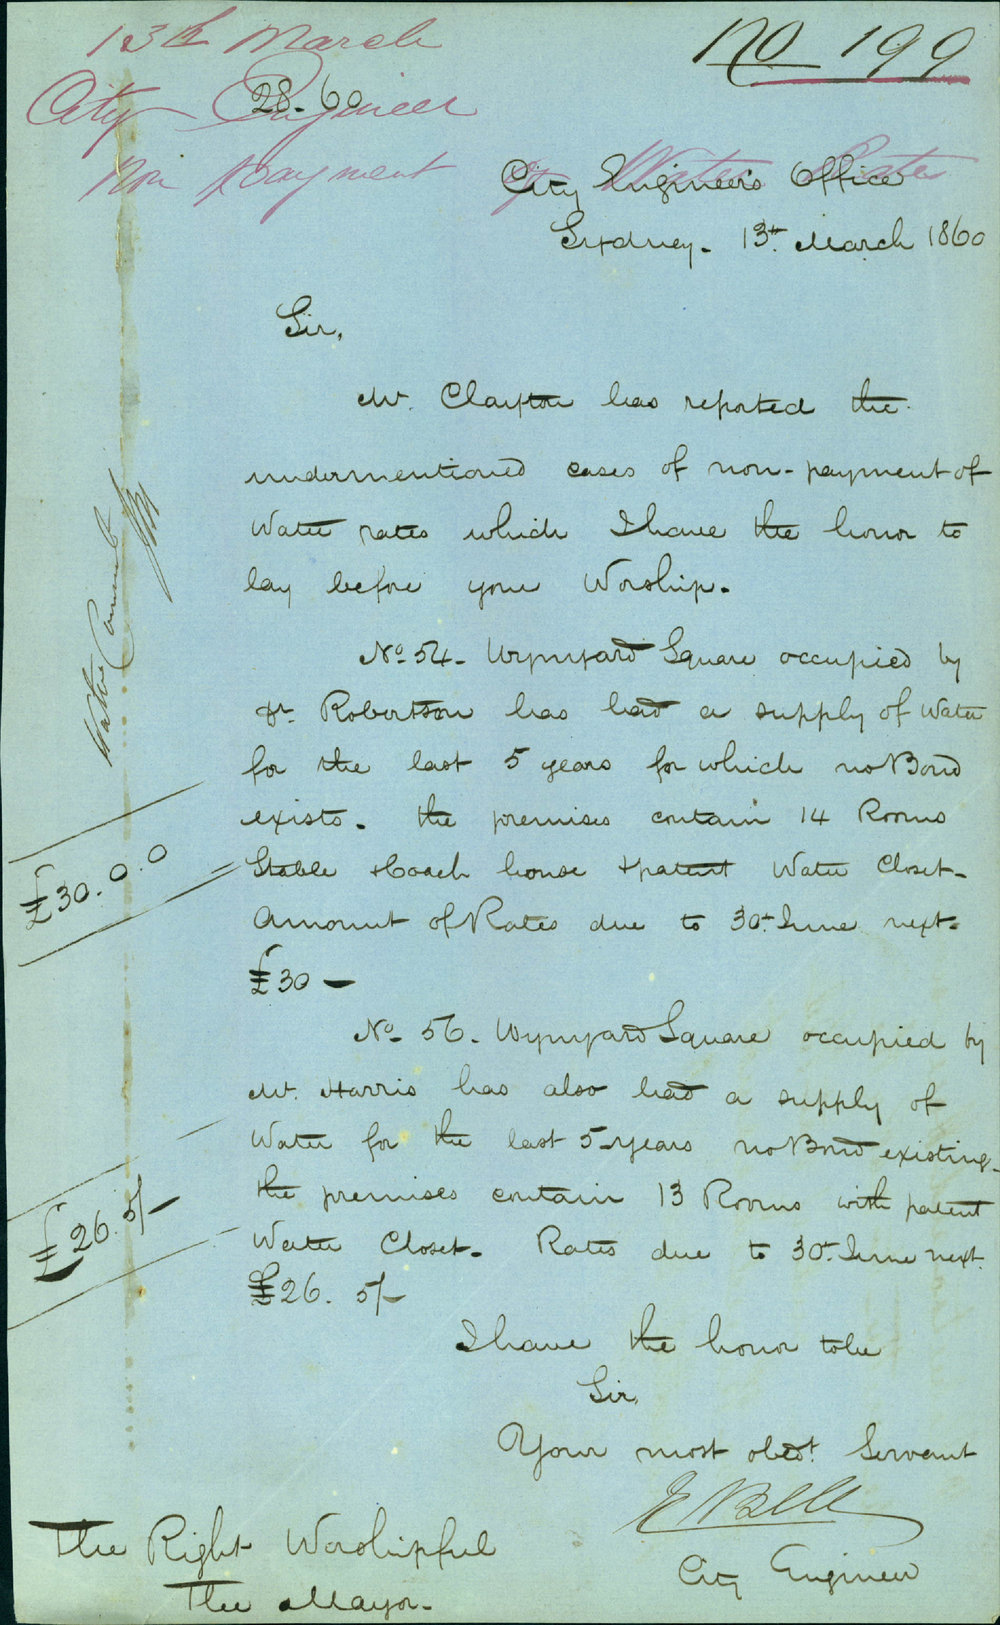 13th March
No 199
City Engineer
28-60
Non payment of Water Rates
City Engineer's Office
Sydney. 13th March 1860
Sir,
Mr. Clayton has reported the
undermentioned cases of non-payment of
Water rates which I have the honor to
lay before your Worship.
No 54. Wynyard Square occupied by
Dr. Robertson has had a supply of Water
for the last 5 years for which no Bond
exists. the premises contain 14 Rooms
Stable & Coach house & patent Water Closet-
Amount of Rates due to 30th June next-
£30 -
No 56. Wynyard Square occupied by
Mr. Harris has also had a supply of
Water for the last 5 years no Bond existing-
the premises contain 13 Rooms with patent
Water Closet- Rates due to 30th June next.
£26. 5/-
I have the honor to be
Sir,
Your most obedt. Servant
E Bell
City Engineer
The Right Worshipful
The Mayor.
Water Committee
£30.0.0
£26.5/-